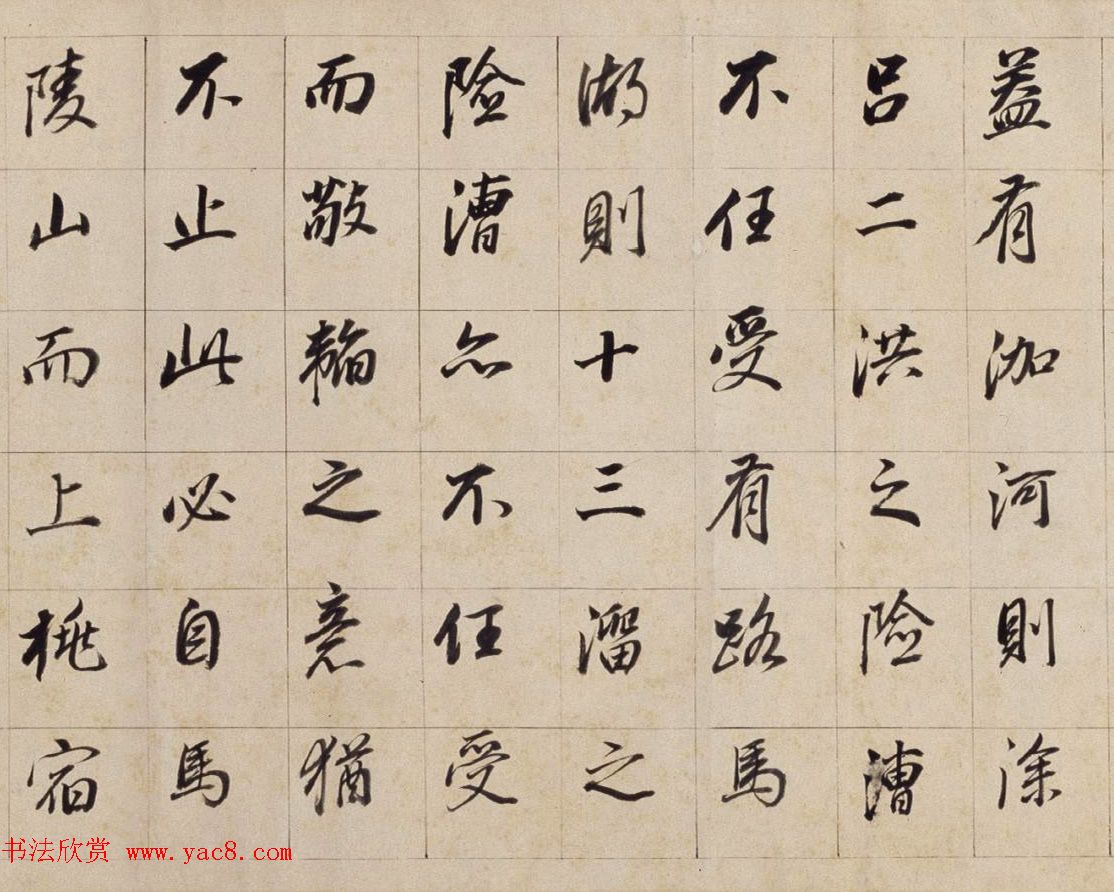 蓋有泇河則涂
呂二洪之險漕
不任受有路馬
湖則十三溜之
險漕亦不任受
而敲韜之意猶
不止此必自馬
陵山而上桃宿
书法欣赏 www.yac8.com